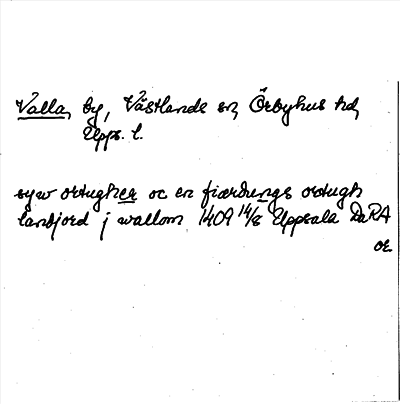 Valla, by, Västlands sn, Örbyhus hd,
Upps. l.
syw ortugher oc en fiærdungs ortugh
landjord j wallom 1409 14/8 Uppsala DaRA
or.